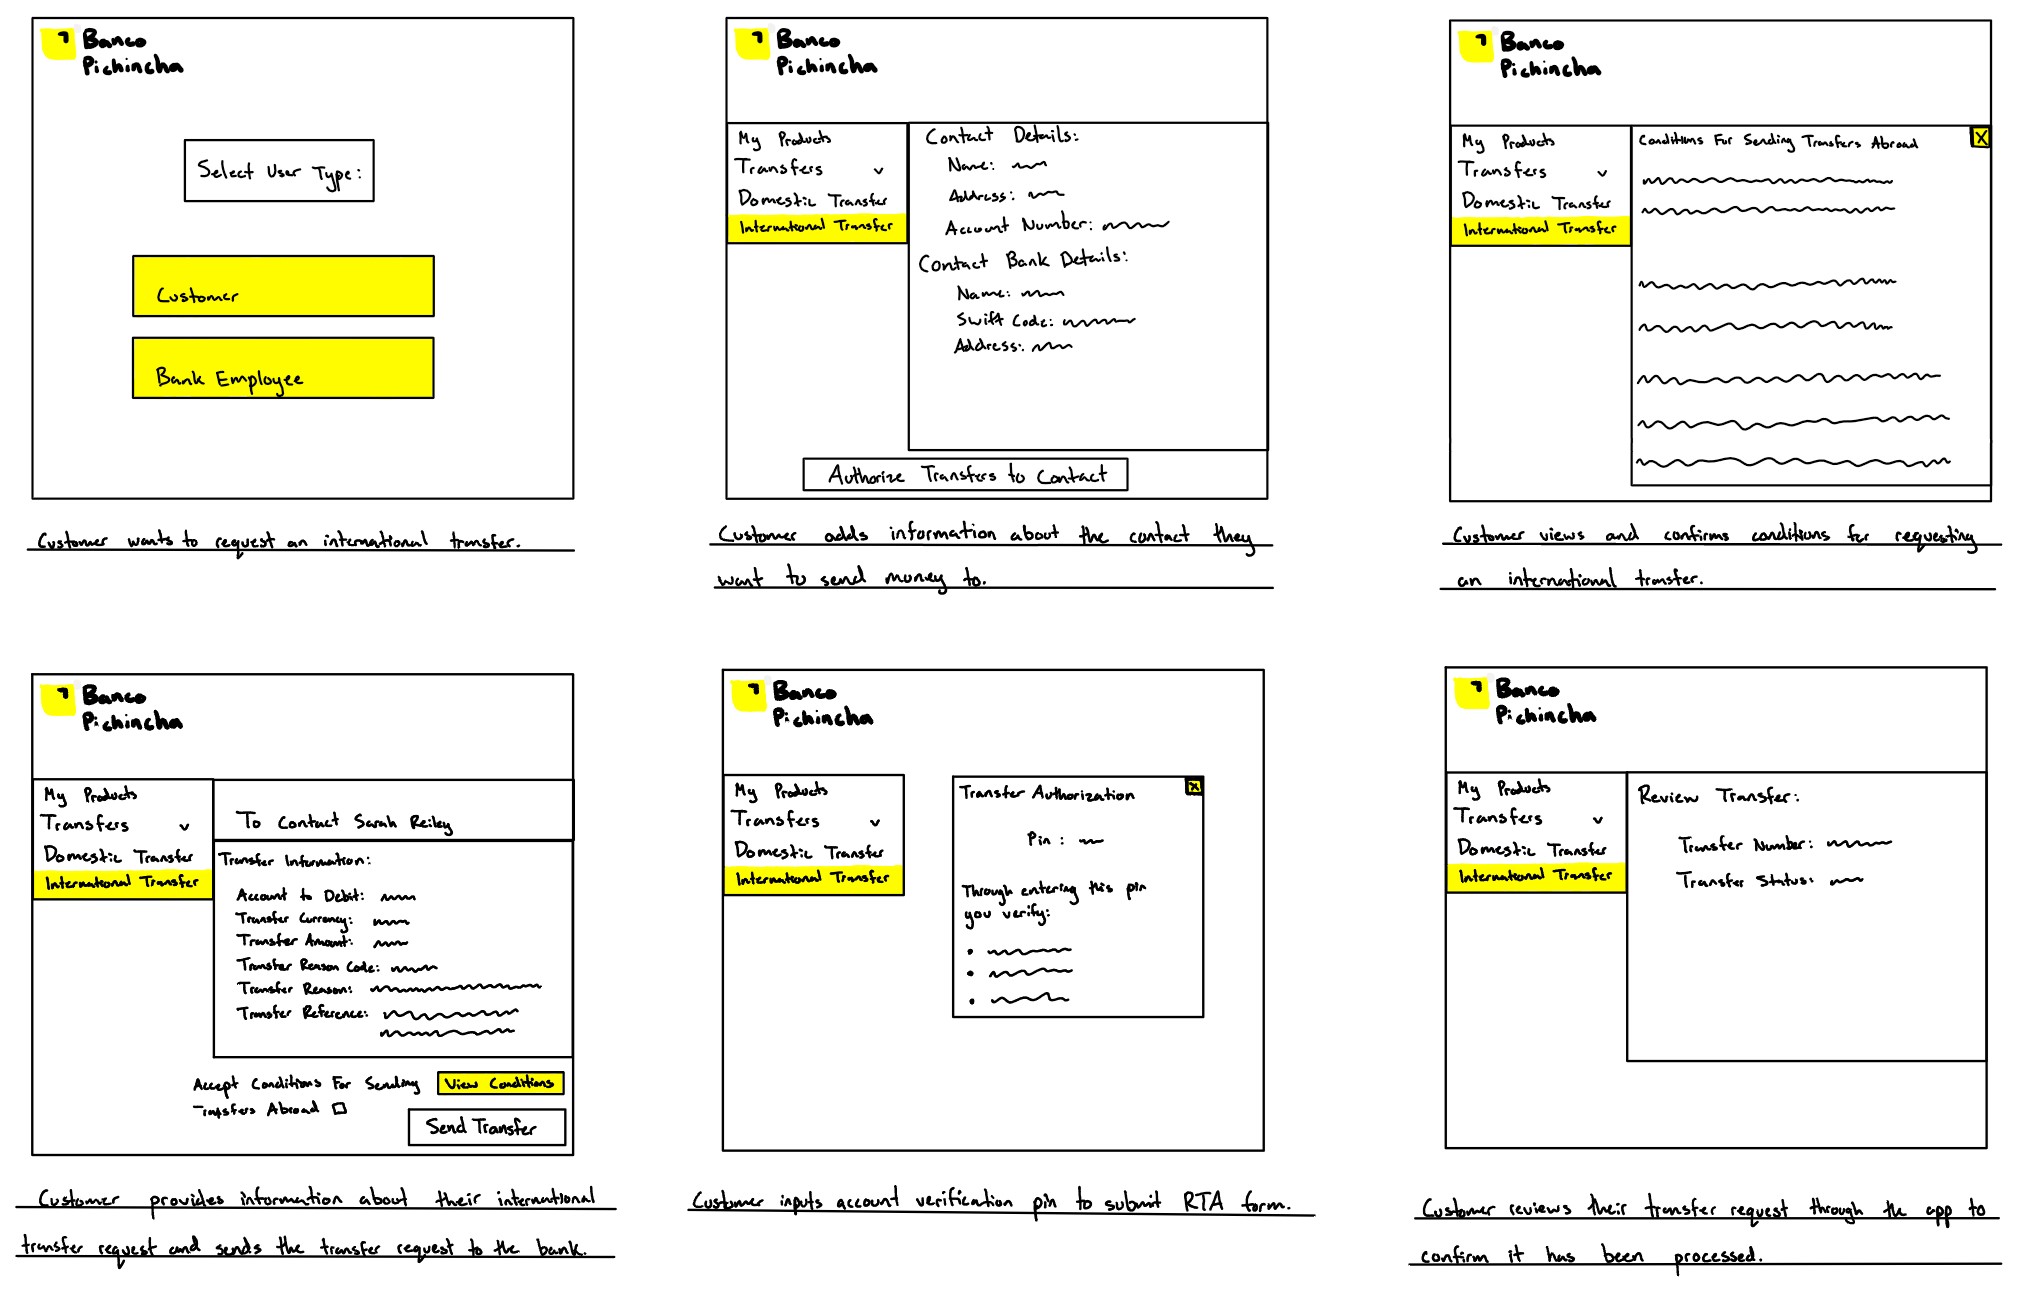 Banco
Pichincha
Select User Type:
Customer
Bank Employee
Customer wants to request an international transfer.
Banco
Pichincha
My Products
Transfers v
Domestic Transfer
International Transfer
Contact Details:
Name:
Address:
Account Number:
Contact Bank Details:
Name:
Swift Code:
Address:
Authorize Transfers to Contact
Customer adds information about the contact they
want to send money to.
Banco
Pichincha
My Products
Transfers v
Domestic Transfer
International Transfer
Conditions For Sending Transfers Abroad
X
Customer views and confirms conditions for requesting
an international transfer.
Banco
Pichincha
My Products
Transfers v
Domestic Transfer
International Transfer
To Contact Sarah Reiley
Transfer Information:
Account to Debit:
Transfer Currency:
Transfer Amount:
Transfer Reason Code:
Transfer Reason:
Transfer Reference:
Accept Conditions For Sending
Transfers Abroad
View Conditions
Send Transfer
Customer provides information about their international
transfer request and sends the transfer request to the bank.
Banco
Pichincha
My Products
Transfers v
Domestic Transfer
International Transfer
Transfer Authorization
X
Pin:
Through entering this pin
you verify:
Customer inputs account verification pin to submit RTA form.
Banco
Pichincha
My Products
Transfers v
Domestic Transfer
International Transfer
Review Transfer:
Transfer Number:
Transfer Status:
Customer reviews their transfer request through the app to
confirm it has been processed.